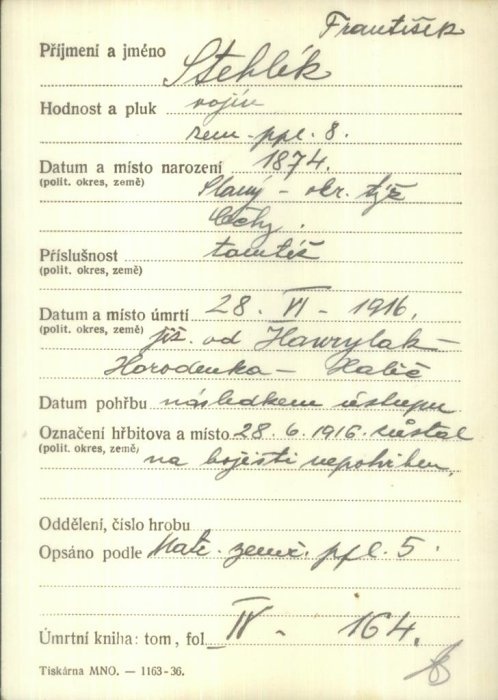 František
Příjmení a jméno Stehlík
Hodnost a pluk vojín
zem. ppl. 8.
Datum a místo narození 1874.
(polit. okres, země) Slaný - okr. týž
Čechy.
Příslušnost tamtéž
(polit. okres, země)
Datum a místo úmrtí 28. VI - 1916.
(polit. okres, země) již. od Hawrylak -
Horodenka - Halič
Datum pohřbu následkem ústupu
Označení hřbitova a místo 28. 6. 1916. zůstal
(polit. okres, země) na bojišti nepohřben.
Oddělení, číslo hrobu
Opsáno podle Matr. zemř. ppl. 5.
Úmrtní kniha: tom, fol IV - 164.
Tiskárna MNO. — 1163-36.